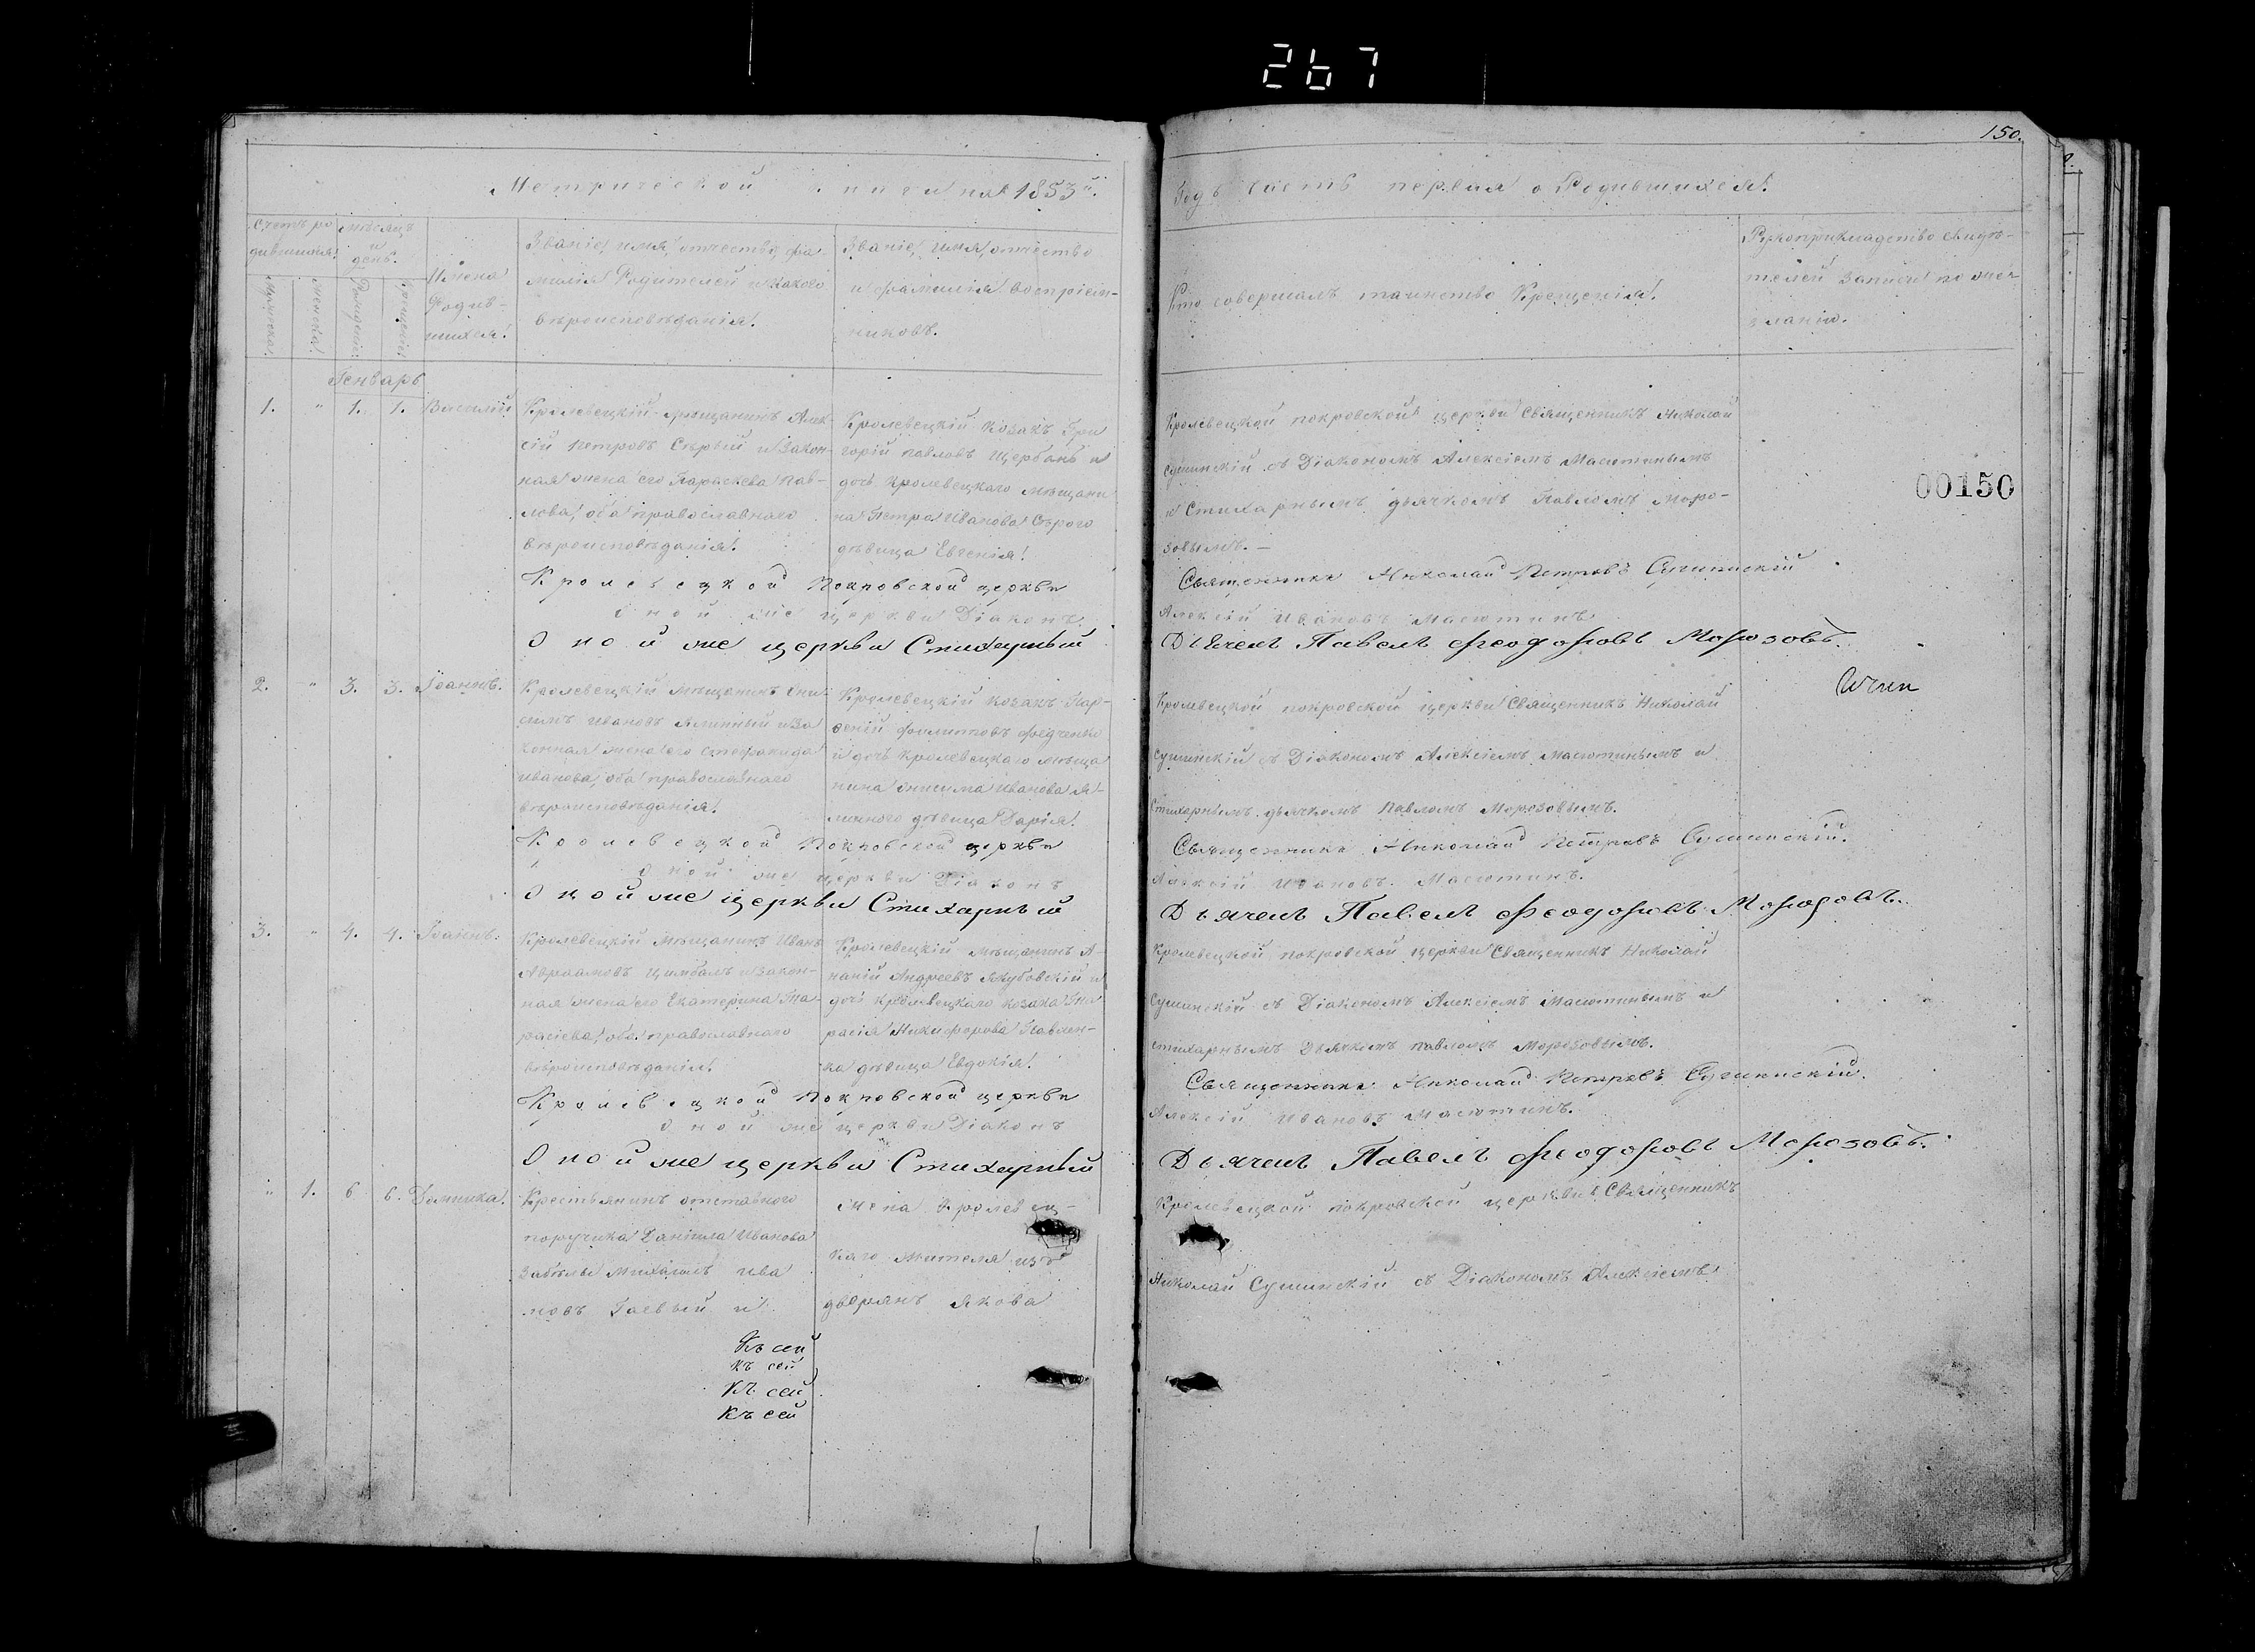 267
150.
Метрической книги на 1853й.
Годъ часть первая о Родившихся.
Счетъ ро
дившихся
мѣсяцъ
и
день.
Имена
Родив-
шихся.
Званіе, имя, отчество, фа-
милія Родителей и какого
вѣроисповѣданія.
Званіе, имя, отчество
и фамилія воспріем-
никовъ.
Кто совершалъ таинство Крещенія.
Рукоприкладство свидѣ-
телей записи по же-
ланію.
мужеска.
женска.
Рожденія.
крещенія.
Генварь
1. " 1. 1. Василій
Кролевецкій мѣщанинъ Алек-
сій Петровъ Сѣрый и закон-
ная жена его Параскева Пав-
лова, оба православнаго
вѣроисповѣданія.
Кролевецкій козакъ Гри
горій Павловъ Щербань и
дочь Кролевецкаго мѣщани
на Петра Иванова Сѣраго
дѣвица Евгенія.
Кролевецкой покровской церкви Священникъ Николай
Сушинскій съ Діакономъ Алексіемъ Масютинымъ
и Стихарнымъ дьячкомъ Павломъ Моро-
зовымъ.
00150
Кролевецкой Покровской церкви Священникъ Николай Петровъ Сушинскій
Оной же церкви Діаконъ Алексій Ивановъ Масютинъ
Оной же церкви Стихарный Дьячекъ Павелъ Феодоровъ Морозовъ.
2. " 3. 3. Іоаннъ.
Кролевецкій мѣщанинъ Они-
симъ Ивановъ Ямный и за
конная жена его Стефанида
Иванова, оба православнаго
вѣроисповѣданія.
Кролевецкій козакъ Пар-
феній Филиповъ Федченко
и дочь Кролевецкаго мѣща
нина Онисима Иванова Я-
много дѣвица Дарія.
Кролевецкой покровской церкви Священникъ Николай
Сушинскій съ Діакономъ Алексіемъ Масютинымъ и
Стихарнымъ дьячкомъ Павломъ Морозовымъ.
Кролевецкой Покровской церкви Священникъ Николай Петровъ Сушинскій.
Оной же церкви Діаконъ Алексій Ивановъ Масютинъ.
Оной же церкви Стихарный Дьячекъ Павелъ Феодоровъ Морозовъ.
3. " 4. 4. Іоаннъ.
Кролевецкій мѣщанинъ Иванъ
Авраамовъ Цимбалъ и закон-
ная жена его Екатерина Та-
расіева, оба православнаго
вѣроисповѣданія.
Кролевецкій мѣщанинъ А-
наній Андреевъ Якубовскій и
дочь Кролевецкаго козака Та
расія Никифорова Павлен-
ка дѣвица Евдокія.
Кролевецкой покровской церкви Священникъ Николай
Сушинскій съ Діакономъ Алексіемъ Масютинымъ и
стихарнымъ дьячкомъ Павломъ Морозовымъ.
Кролевецкой Покровской церкви Священникъ Николай Петровъ Сушинскій.
Оной же церкви Діаконъ Алексій Ивановъ Масютинъ.
Оной же церкви Стихарный Дьячекъ Павелъ Феодоровъ Морозовъ.
" 1. 6 6. Домника.
Крестьянинъ отставного
поручика Даніила Иванова
Забѣлы Михаилъ Ива
новъ Гаевый и
жена Кролевец-
каго жителя изъ
дворянъ Якова
Кролевецкой покровской церкви Священникъ
Николай Сушинскій съ Діакономъ Алексіемъ
Къ сей
къ сей
Къ сей
Къ сей